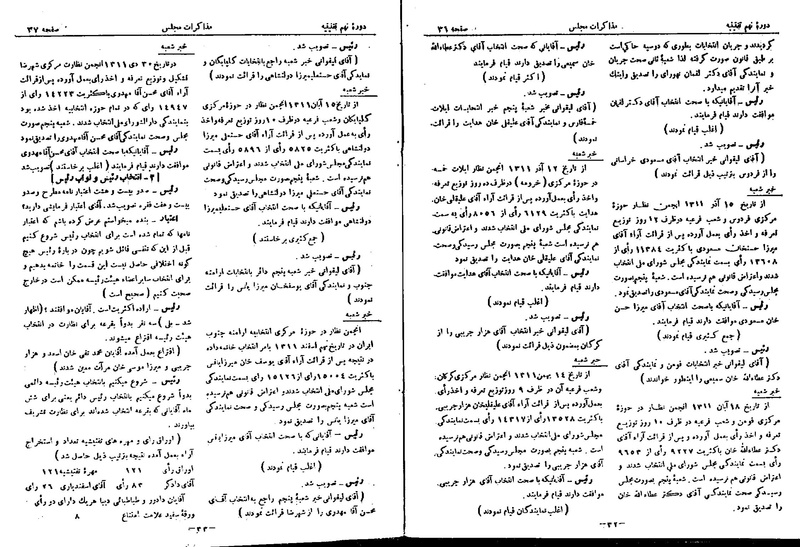 دورهٔ نهم تقنینیه
مذاکرات مجلس
صفحه ۳۶
گردیدند و جریان انتخابات بطوری که دوسیه حاکی است
بر طبق قانون صورت گرفته لذا شعبهٔ ثانی صحت جریان
و نمایندگی آقای دکتر لقمان نهورای را تصدیق و اینک
خبر آنرا تقدیم میدارد.
رئیس ـ آقایانیکه با صحت انتخاب آقای دکتر لقمان
موافقت دارند قیام فرمایند
(اغلب قیام نمودند)
رئیس ـ تصویب شد.
(آقای لیقوانی خبر انتخاب آقای مسعودی خراسانی
را از فردوس بترتیب ذیل قرائت نمودند)
خبر شعبه
از تاریخ ۱۵ آذر ۱۳۱۱ انجمن نظار در حوزهٔ
مرکزی فردوس و شعب فرعیه در ظرف ۱۲ روز توزیع
تعرفه و اخذ رأی بعمل آورده پس از قرائت آراء آقای
میرزا حسنخان مسعودی باکثریت ۱۱۳۸۴ رأی از
۱۳۶۰۸ رأی بسمت نمایندگی مجلس شورای ملی انتخاب
شدند و اعتراض قانونی هم نرسیده است. شعبهٔ پنجم بصورت
مجلس رسیدگی و صحت نمایندگی آقای مسعودی را تصدیق نمود.
رئیس ـ آقایانیکه با صحت انتخاب آقای میرزا حسن
خان مسعودی موافقت دارند قیام فرمایند.
(جمع کثیری قیام نمودند)
رئیس ـ تصویب شد.
(آقای لیقوانی خبر انتخابات فومن و نمایندگی آقای
دکتر عطاءالله خان سمیعی را اینطور خواندند)
خبر شعبه
از تاریخ ۱۸ آبان ۱۳۱۱ انجمن نظار در حوزهٔ
مرکزی فومن و شعب فرعیه در ظرف ۱۰ روز توزیع
تعرفه و اخذ رأی بعمل آورده و پس از قرائت آراء آقای
دکتر عطاءالله خان باکثریت ۹۲۲۷ رأی از ۹۶۵۳
رأی بسمت نمایندگی مجلس شورای ملی انتخاب شدند و
اعتراض قانونی هم نرسیده است. شعبهٔ پنجم بصورت مجلس
رسیدگی و صحت نمایندگی آقای دکتر عطاءالله خان
را تصدیق نمود.
رئیس ـ آقایانی که با صحت انتخاب آقای دکتر عطاءالله
خان سمیعی موافقت دارند قیام فرمایند
(اکثر قیام نمودند)
رئیس ـ تصویب شد.
(آقای لیقوانی مخبر شعبه پنجم خبر انتخابات ایلات
خمسه فارس و نمایندگی آقای علیقلی خان هدایت را قرائت
نمودند)
خبر شعبه
از تاریخ ۱۲ آذر ۱۳۱۱ انجمن نظار ایلات خمسه
در حوزهٔ مرکزی در ظرف ده روز توزیع تعرفه
و بعمل آورده پس از قرائت آراء آقای علیقلی خان
هدایت باکثریت ۶۱۲۹ رأی از ۸۰۵۶ رأی بسمت
نمایندگی مجلس شورای ملی انتخاب شدند و اعتراض قانونی
هم نرسیده است شعبهٔ پنجم بصورت مجلس رسیدگی وصحت
نمایندگی آقای علیقلی خان هدایت را تصدیق نمود.
رئیس ـ آقایانیکه با صحت انتخاب آقای هدایت موافقت
دارند قیام فرمایند.
(اغلب قیام نمودند)
رئیس ـ تصویب شد.
(آقای لیقوانی خبر انتخاب آقای هزار جریبی را از
گرگان بمضمون ذیل قرائت نمودند)
خبر شعبه
از تاریخ ۱۴ بهمن ۱۳۱۱ انجمن نظار مرکزی گرگان
و شعب فرعیه آن در ظرف ۹ روز توزیع تعرفه و اخذ رأی
بعمل آورده پس از قرائت آراء آقای علیقلیخان هزار جریبی
باکثریت ۱۳۵۲۸ رأی از ۱۴۳۱۷ رأی بسمت نمایندگی
مجلس شورای ملی انتخاب شدند و اعتراض قانونی هم نرسیده
است. شعبه پنجم بصورت مجلس رسیدگی و صحت نمایندگی
آقای هزار جریبی را تصدیق نمود.
رئیس ـ آقایانیکه با صحت انتخاب آقای هزار جریبی
موافقت دارند قیام فرمایند.
(اغلب نمایندگان قیام نمودند)
ـ۳۲ـ
دورهٔ نهم تقنینیه
مذاکرات مجلس
صفحه ۳۷
رئیس ـ تصویب شد.
(آقای لیقوانی خبر شعبه راجع بانتخابات گلپایگان و
نمایندگی آقای حسنعلی میرزا دولتشاهی را قرائت نمودند)
خبر شعبه
از تاریخ ۱۵ آبان ۱۳۱۱ انجمن نظار در حوزهٔ مرکزی
گلپایگان و شعب فرعیه در ظرف ۱۰ روز توزیع تعرفه و اخذ
رأی بعمل آورده پس از قرائت آراء آقای حسنعلی میرزا
دولتشاهی باکثریت ۵۸۲۵ رأی از ۵۸۹۶ رأی بسمت
نمایندگی مجلس شورای ملی انتخاب شدند و اعتراض قانونی
هم نرسیده است. شعبهٔ پنجم بصورت مجلس رسیدگی وصحت
نمایندگی آقای حسنعلی میرزا دولتشاهی را تصدیق نمود
رئیس ـ آقایانیکه با صحت انتخاب آقای حسنعلی میرزا
دولتشاهی موافقت دارند قیام فرمایند.
(جمع کثیری برخاستند)
رئیس ـ تصویب شد.
(آقای لیقوانی خبر شعبه پنجم دائر بانتخابات ارامنه
جنوب و نمایندگی آقای یوسفخان میرزا یانس را قرائت
نمودند)
خبر شعبه
انجمن نظار در حوزهٔ مرکزی انتخابیه ارامنه جنوب
ایران در تاریخ نهم اسفند ۱۳۱۱ بامر انتخاب خاتمه داده
در نتیجه پس از قرائت آراء آقای یوسف خان میرزایانس
باکثریت ۱۵۰۰۴ رأی از ۱۵۱۲۶ رأی بسمت نمایندگی
مجلس شورای ملی انتخاب شدند و اعتراض قانونی هم نرسیده
است شعبه پنجم بصورت مجلس رسیدگی و صحت نمایندگی
آقای میرزا یانس را تصدیق نمود.
رئیس ـ آقایانی که با صحت انتخاب آقای میرزایانس
موافقت دارند قیام فرمایند.
(اغلب قیام نمودند)
رئیس ـ تصویب شد.
(آقای لیقوانی خبر شعبه پنجم راجع به انتخاب آقای
محسن آقا مهدوی را از شهرضا قرائت نمودند)
خبر شعبه
در تاریخ ۳۰ دی ۱۳۱۱ انجمن نظارت مرکزی شهرضا
تشکیل و توزیع تعرفه و اخذ رأی بعمل آورده پس از قرائت
آراء آقای محسن آقا مهدوی باکثریت ۱۴۲۲۳ رأی از
۱۴۹۴۷ رأی که در تمام حوزه انتخابیه اخذ شده بود
بنمایندگی دارالشورای ملی انتخاب شدند. شعبه پنجم صورت
مجلس وصحت نمایندگی آقای محسن آقا مهدوی را تصدیق نمود
رئیس ـ آقایانیکه با صحت انتخاب آقای محسن آقا مهدوی
موافقت دارند قیام فرمایند (اغلب برخاستند) تصویب شد
[۳ـ انتخاب رئیس و نواب رئیس]
رئیس ـ صدر بیست و هشت اعتبار نامه مطرح و صدو
بیست و هفت فقره تصویب شد. آقای اعتبار فرمایشی دارید؟
اعتبار ـ بنده میخواستم عرض کرده باشم که اعتبار
نامها که تمام شده است برای انتخاب رئیس شروع کنیم
قبل از این که تنفسی قائل شویم چون در بارهٔ رئیس هیچ
گونه اختلافی حاصل نیست این قسمت را خاتمه بدهیم و
برای انتخاب سایر اعضاء هیئت رئیسه ممکن است در خارج
صحبت کنیم (صحیح است)
رئیس ـ اراده اکثریت است. آقایان موافقند؟ (اظهار
شد ـ بلی) سه نفر بدواً بقرعه برای نظارت در انتخاب
هیئت رئیسه اقتراع میشوند.
(اقتراع بعمل آمده آقایان محمد تقی خان اسعد و هزار
جریبی و میرزا موسی خان مرآت معین شدند)
رئیس ـ شروع میکنیم بانتخاب هیئت رئیسه دائمی
بدواً شروع میکنیم بانتخاب رئیس دائم یعنی برای شش
ماه آقایانی که بقرعه انتخاب شده‌اند برای نظارت تشریف
بیاورند.
(اوراق رأی و مهره های تفتیشیه تعداد و استخراج
آراء بعمل آمده نتیجه بترتیب ذیل حاصل شد)
اوراق رأی ۱۲۱ مهرهٔ تفتیشیه ۱۲۱
آقای دادگر ۸۳ رأی آقای اسفندیاری ۲۶ رأی
آقایان دادور و طباطبائی دیبا هریك دارای دو رأی
ورقهٔ سفید علامت امتناع ۸
ـ۳۳ـ